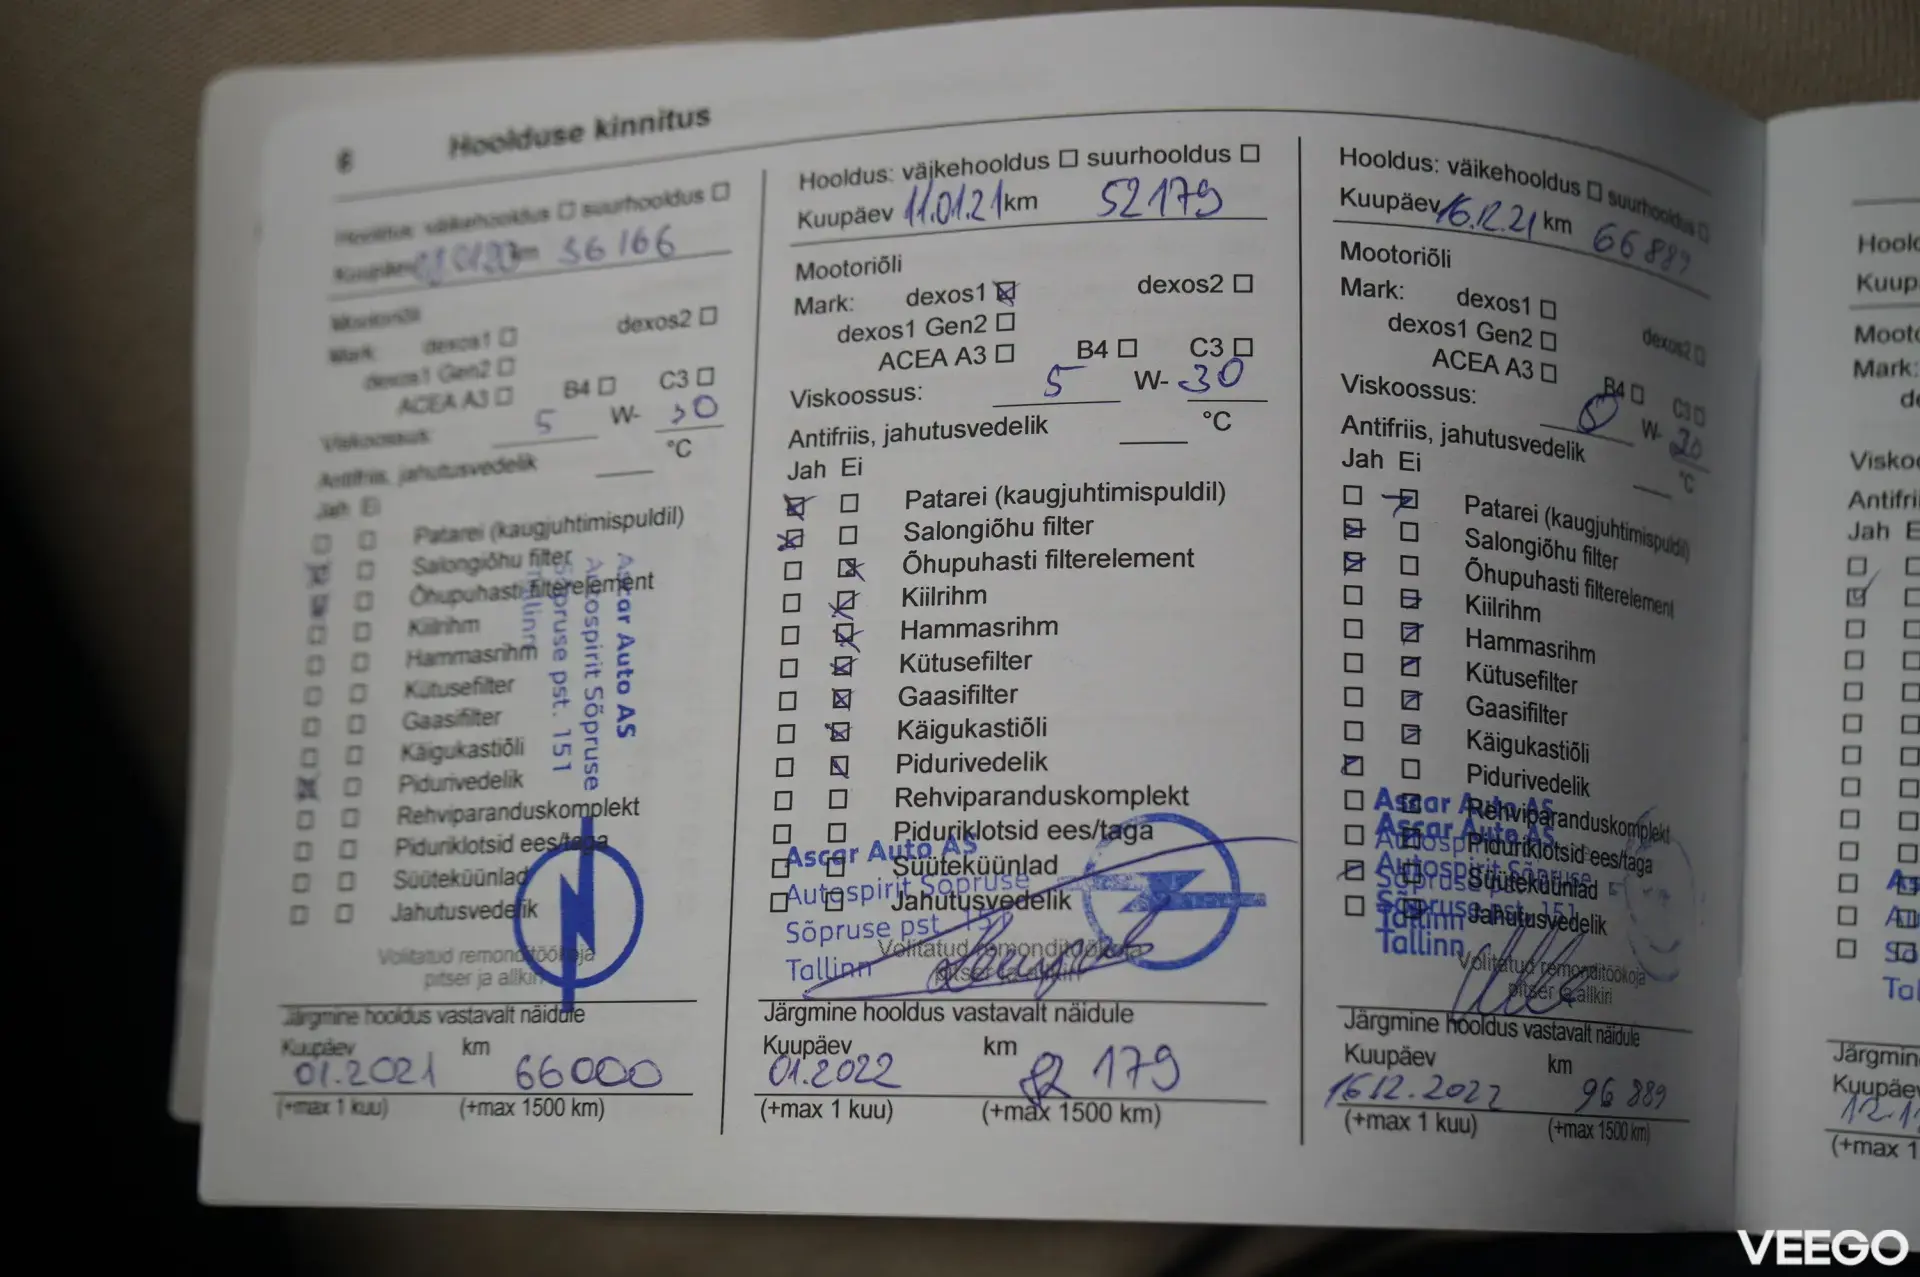 Hoolduse kinnitus
Hooldus: väikehooldus suurhooldus
Kuupäev km 36 166
Mootoriõli
Mark: dexos1 dexos2
dexos1 Gen2
ACEA A3 B4 C3
Viskoossus: 5 W- 30
Antifriis, jahutusvedelik °C
Jah Ei
Patarei (kaugjuhtimispuldil)
Salongiõhu filter
Õhupuhasti filterelement
Kiilrihm
Hammasrihm
Kütusefilter
Gaasifilter
Käigukastiõli
Pidurivedelik
Rehviparanduskomplekt
Piduriklotsid ees/taga
Süüteküünlad
Jahutusvedelik
Ascar Auto AS
Autospirit Sõpruse
Sõpruse pst. 151
Tallinn
Volitatud remonditöökoja
pitser ja allkiri
Järgmine hooldus vastavalt näidule
Kuupäev km
01.2021 66000
(+max 1 kuu) (+max 1500 km)
Hooldus: väikehooldus suurhooldus
Kuupäev 11.01.21 km 52 179
Mootoriõli
Mark: dexos1 dexos2
dexos1 Gen2
ACEA A3 B4 C3
Viskoossus: 5 W- 30
Antifriis, jahutusvedelik °C
Jah Ei
Patarei (kaugjuhtimispuldil)
Salongiõhu filter
Õhupuhasti filterelement
Kiilrihm
Hammasrihm
Kütusefilter
Gaasifilter
Käigukastiõli
Pidurivedelik
Rehviparanduskomplekt
Piduriklotsid ees/taga
Süüteküünlad
Jahutusvedelik
Ascar Auto AS
Autospirit Sõpruse
Sõpruse pst. 151
Tallinn
Volitatud remonditöökoja
pitser ja allkiri
Järgmine hooldus vastavalt näidule
Kuupäev km
01.2022 82 179
(+max 1 kuu) (+max 1500 km)
Hooldus: väikehooldus suurhooldus
Kuupäev 16.12.21 km 66 889
Mootoriõli
Mark: dexos1 dexos2
dexos1 Gen2
ACEA A3 B4 C3
Viskoossus: W-
Antifriis, jahutusvedelik °C
Jah Ei
Patarei (kaugjuhtimispuldil)
Salongiõhu filter
Õhupuhasti filterelement
Kiilrihm
Hammasrihm
Kütusefilter
Gaasifilter
Käigukastiõli
Pidurivedelik
Rehviparanduskomplekt
Piduriklotsid ees/taga
Süüteküünlad
Jahutusvedelik
Ascar Auto AS
Ascar Auto AS
Autospirit Sõpruse
Sõpruse pst. 151
Tallinn
Tallinn
Volitatud remonditöökoja
pitser ja allkiri
Järgmine hooldus vastavalt näidule
Kuupäev km
16.12.2022 96 889
(+max 1 kuu) (+max 1500 km)
Jah
Järgmin
(+max 1
VEEGO